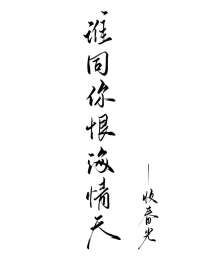 谁同你恨海情天
——收春光